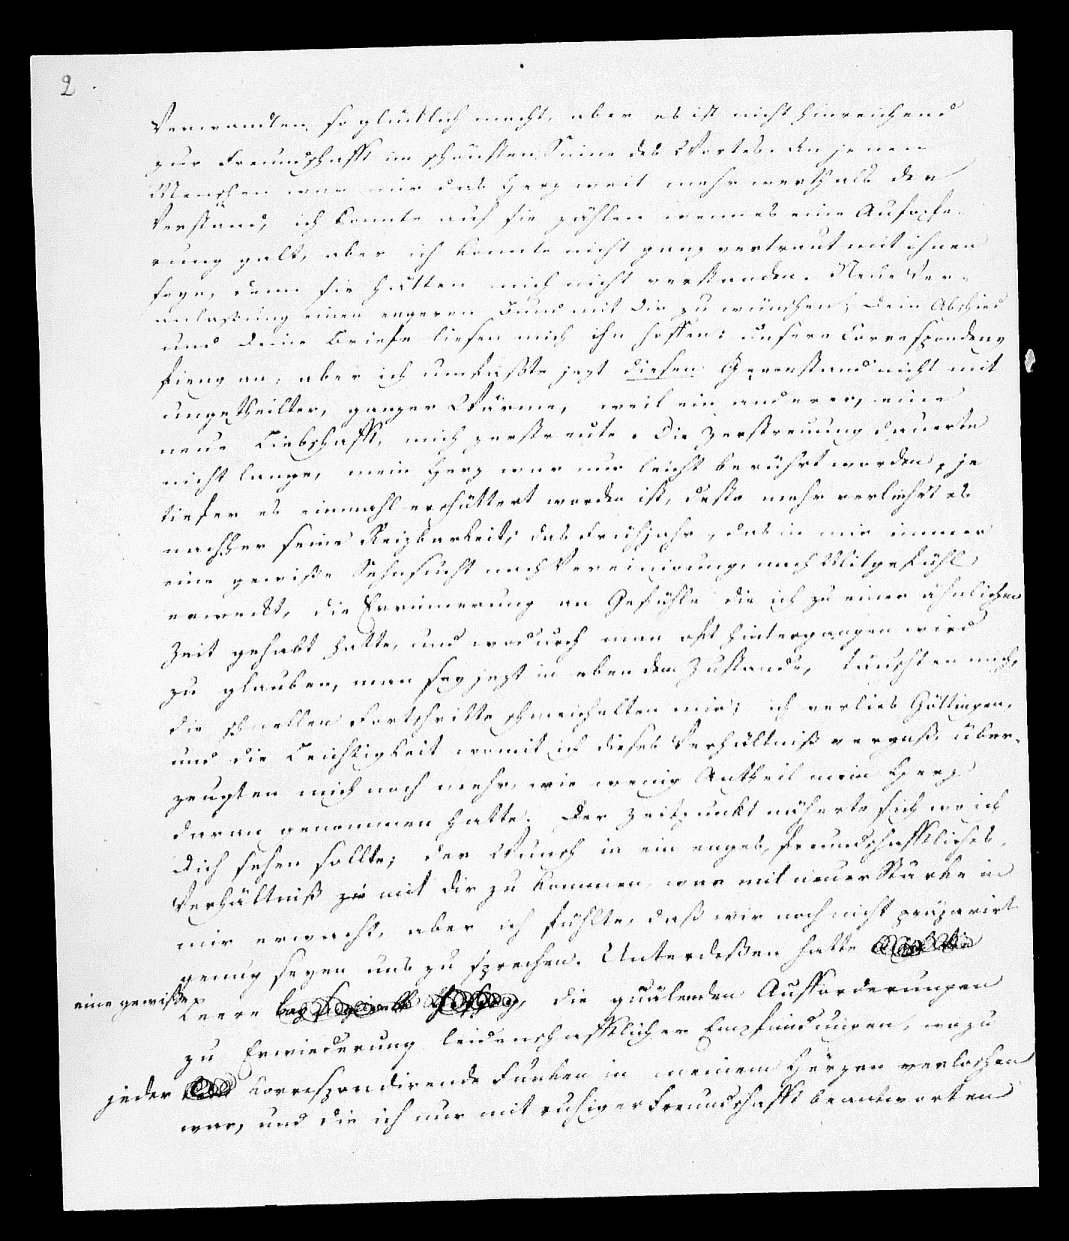 2.
Verwandten so glücklich macht, aber es ist nicht hinreichend
zur Freundschafft im schönsten Sinne des Wortes. An jenen
Menschen war mir das Herz weit mehr werth als der
Verstand, ich konnte auf sie zählen wenn es eine Aufopfe-
rung galt, aber ich konnte nicht ganz vertraut mit ihnen
seyn, denn sie hätten mich nicht verstanden. Neue Ver-
anlaßung einen engeren Bund mit Dir zu wünschen! Dein Abschied
und Deine Briefe liesen mich ihn hoffen: unsere Correspondenz
fieng an, aber ich umfaßte jezt diesen Gegenstand nicht mit
ungetheilter, ganzer Wärme, weil ein anderer, eine
neue Liebschafft, mich zerstreute. Die Zerstreuung dauerte
nicht lange, mein Herz war nur leicht berührt worden, je
tiefer es einmahl erschüttert worden ist, desto mehr verliehrt es
nachher seine Reizbarkeit; das Frühjahr, das in mir immer
eine gewiße Sehnsucht nach Vereinigung, nach Mitgefühl
erweckt, die Erinnerung an Gefühle die ich zu einer ähnlichen
Zeit gehabt hatte, und wodurch man oft hintergangen wird
zu glauben, man sey jezt in eben dem Zustande, täuschten mich,
die schnellen Fortschritte schmeichelten mir; ich verlies Göttingen,
und die Leichtigkeit womit ich dieses Verhältniß vergaß, über-
zeugten mich noch mehr, wie wenig Antheil mein Herz
daran genommen hatte. Der Zeitpunkt näherte sich wo ich
Dich sehen sollte; der Wunsch in ein enges, freundschafftliches
Verhältniß zu mit Dir zu kommen, war mit neuer Stärke in
mir erwacht, aber ich fühlte, daß wir noch nicht präparirt
genug seyen uns zu sprechen. Unterdeßen hatte
eine gewiße Leere, die quälenden Aufforderungen
zu Erwiederung leidenschafftlicher Empfindungen, wozu
jeder correspondirende Funken in meinem Herzen verloschen
war, und die ich nur mit ruhiger Freundschafft beantworten